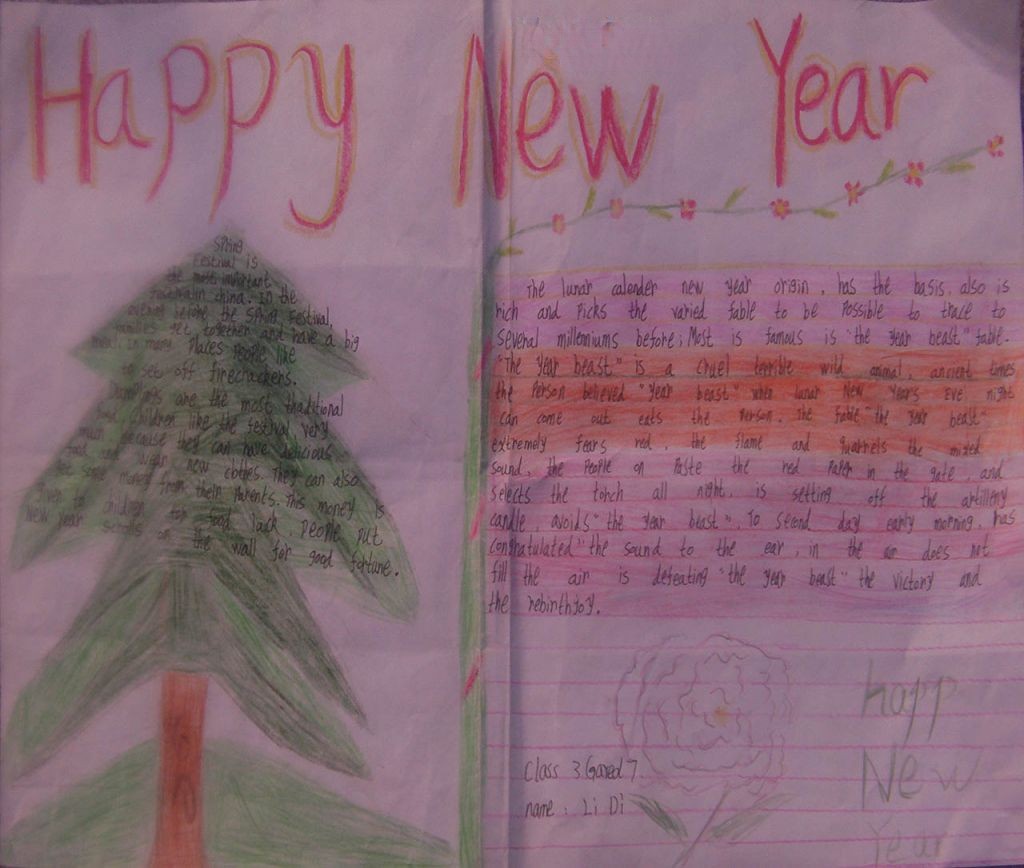 Happy New Year
Spring
Festival is
the most important
festival in china. In the
evening before the Spring Festival,
families get together and have a big
meal. in many Places People like
to set off firecrackers.
Dumplings are the most traditional
food. children like the festival very
much because they can have delicious
food and wear new clothes. They can also
get some money from their Parents. This money is
given to children for good luck. People put
New Year scrolls on the wall for good fortune.
The lunar calender new year origin, has the basis, also is
rich and Picks the varied fable to be Possible to trace to
several millenniums before; Most is famous is "the year beast" fable.
"The year beast" is a cruel terrible wild animal, ancient times
the Person believed "year beast" when lunar New Year's Eve night
can come out eats the Person. The fable "the year beast"
extremely fears red, the flame and quarrels the mixed
sound, the People on Paste the red Paper in the gate, and
selects the torch all night, is setting off the artillery
candle, avoids "the year beast". To second day early morning, has
congratulated" the sound to the ear, in the air does not
fill the air is defeating "the year beast" the victory and
the rebirthjoy.
Class 3 Gared 7
name: Li Di
happ
New
Year